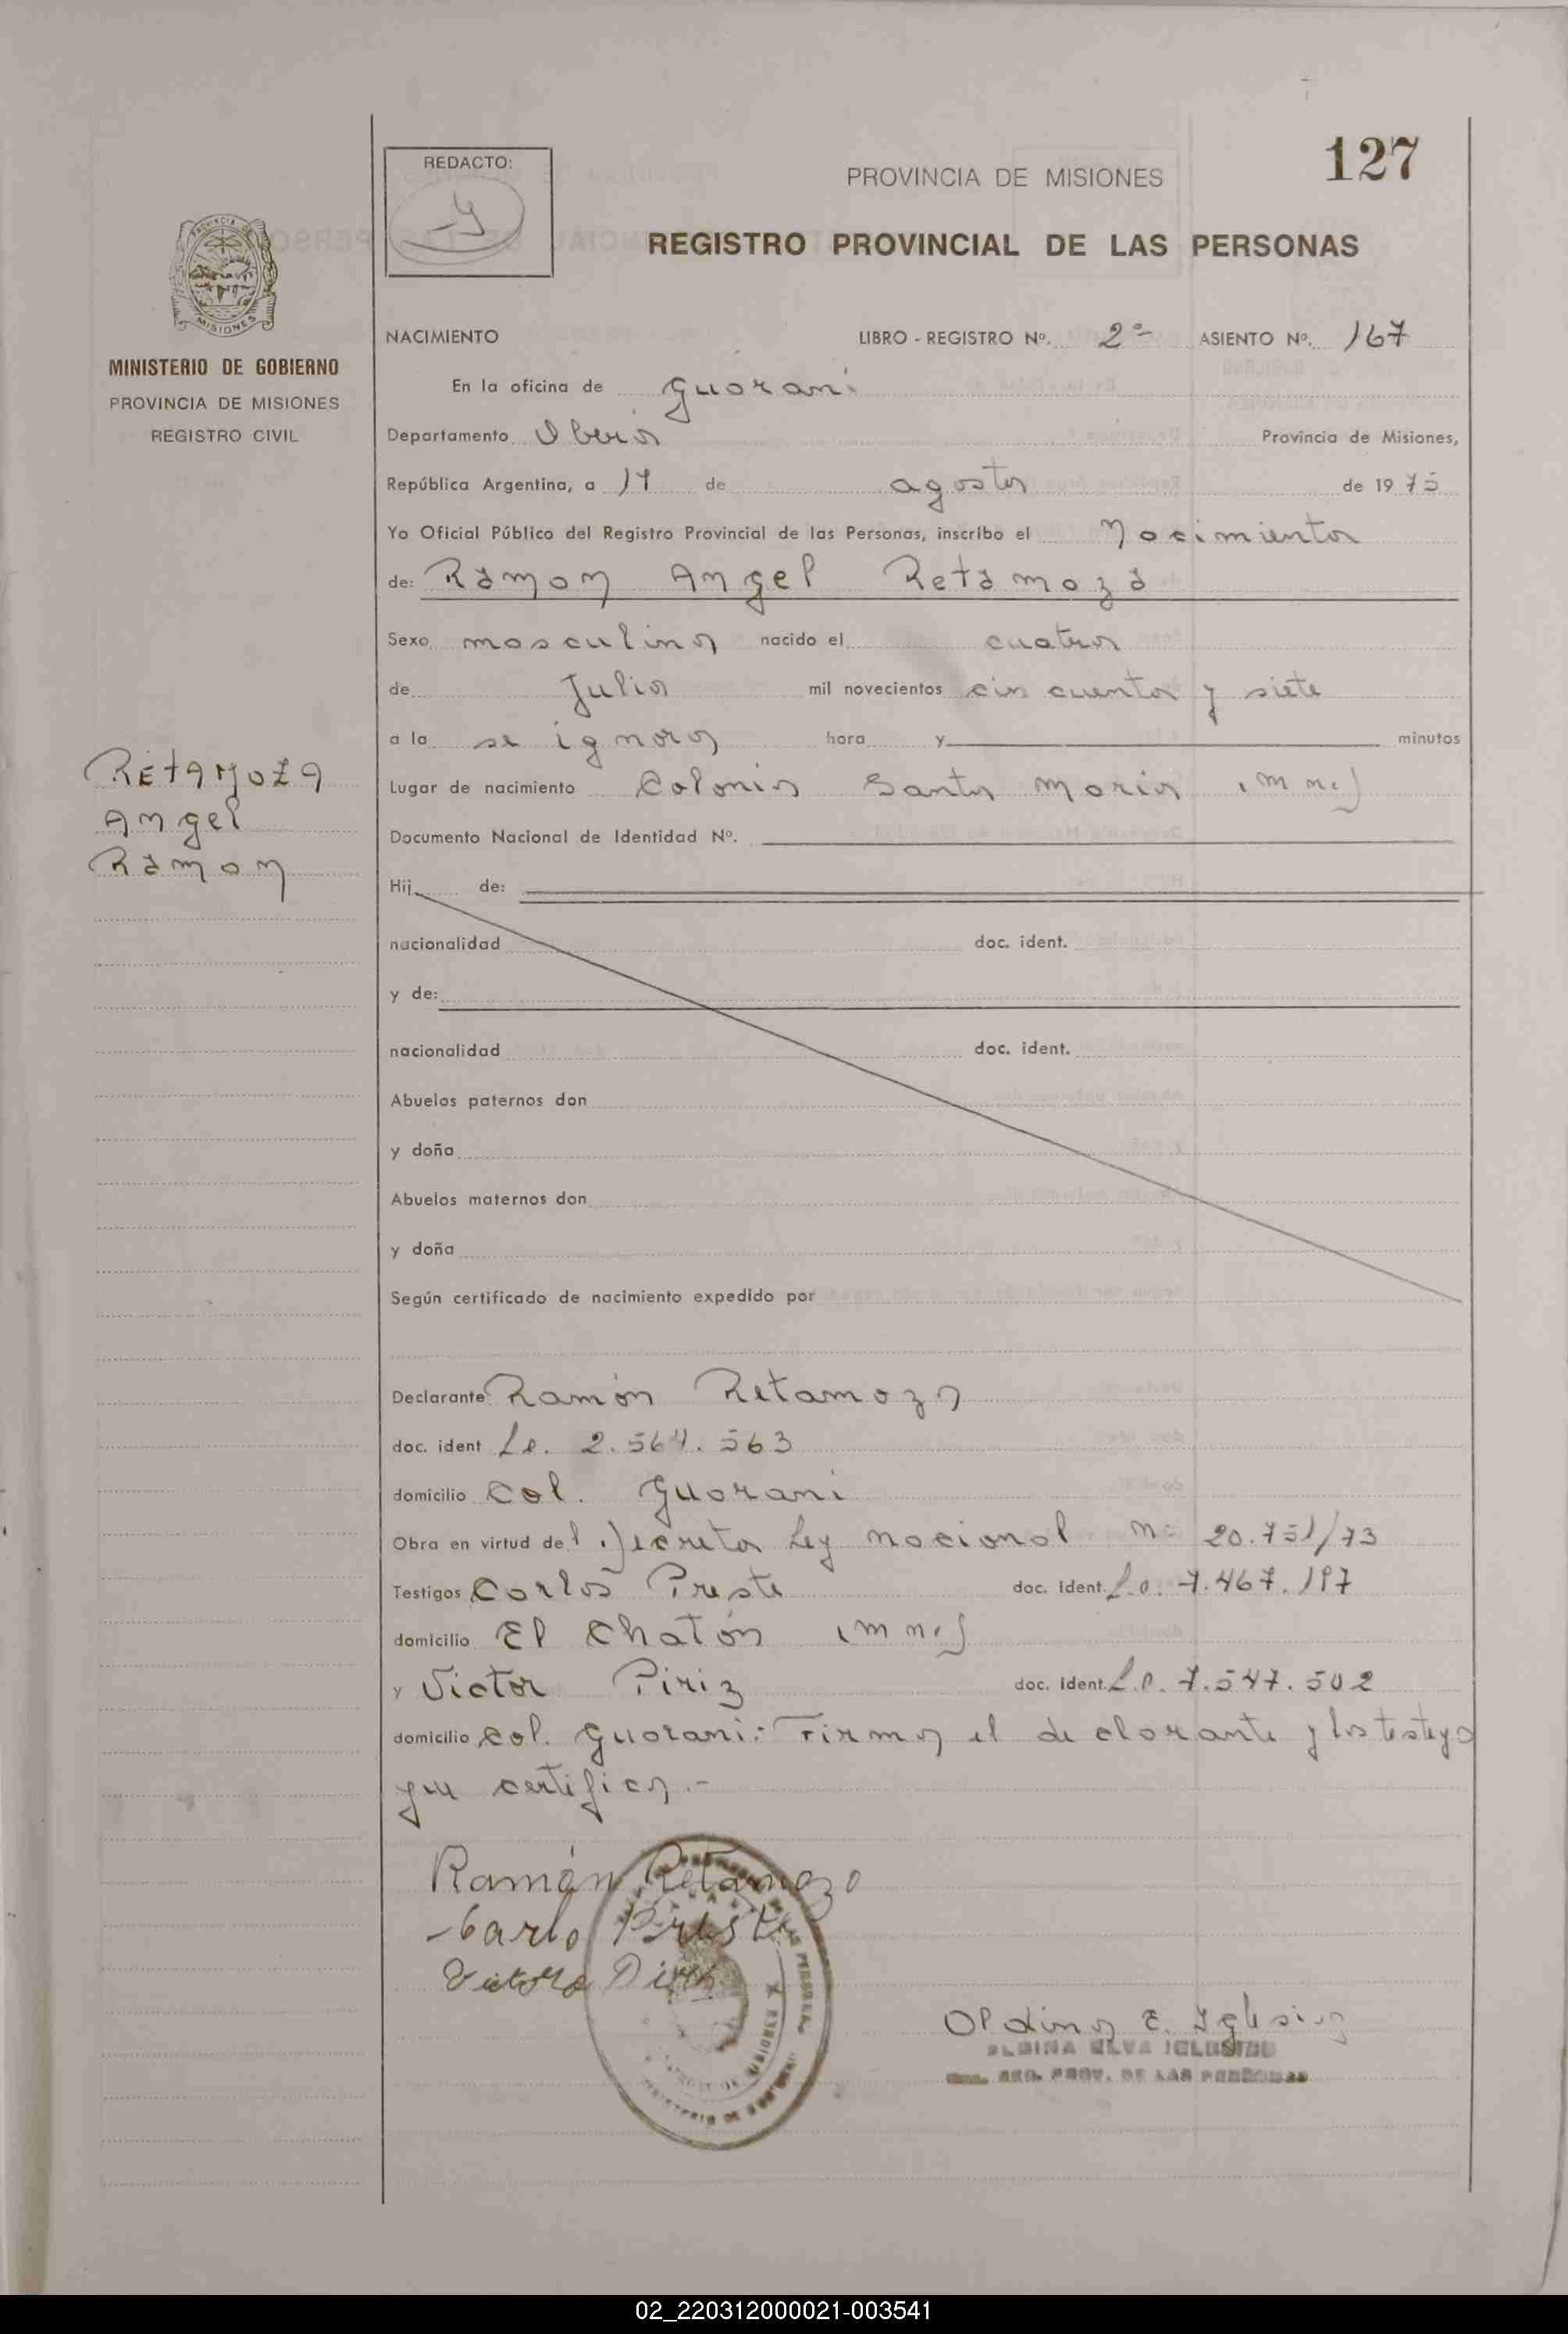 127
REDACTO:
PROVINCIA DE MISIONES
REGISTRO PROVINCIAL DE LAS PERSONAS
MISIONES
MINISTERIO DE GOBIERNO
PROVINCIA DE MISIONES
REGISTRO CIVIL
NACIMIENTO LIBRO - REGISTRO Nº. 2º ASIENTO Nº. 167
En la oficina de Guarani
Departamento Oberá Provincia de Misiones,
República Argentina, a 14 de agosto de 1975
Yo Oficial Público del Registro Provincial de las Personas, inscribo el Nacimiento
de: Ramon Angel Retamoza
Sexo masculino nacido el cuatro
de Julio mil novecientos cincuenta y siete
a la se ignora hora y minutos
Lugar de nacimiento Colonia Santa Maria (Mnes)
Documento Nacional de Identidad Nº.
RETAMOZA
Angel
Ramon
Hij de:
nacionalidad doc. ident.
y de:
nacionalidad doc. ident.
Abuelos paternos don
y doña
Abuelos maternos don
y doña
Según certificado de nacimiento expedido por
Declarante Ramón Retamozo
doc. ident L.e. 2.564.563
domicilio Col. Guarani
Obra en virtud del Decreto Ley nacional Nº 20.751/73
Testigos Carlos Preste doc. Ident. L.e. 7.467.197
domicilio El Chatón (Mnes)
y Victor Piriz doc. Ident. L.e. 7.547.502
domicilio Col. Guarani: Firman el declarante y los testigo
que certifico.-
Ramón Retamozo
Carlo Prest
Oldina E. Iglesias
REG. PROV. DE LAS PERSONAS
02_220312000021-003541